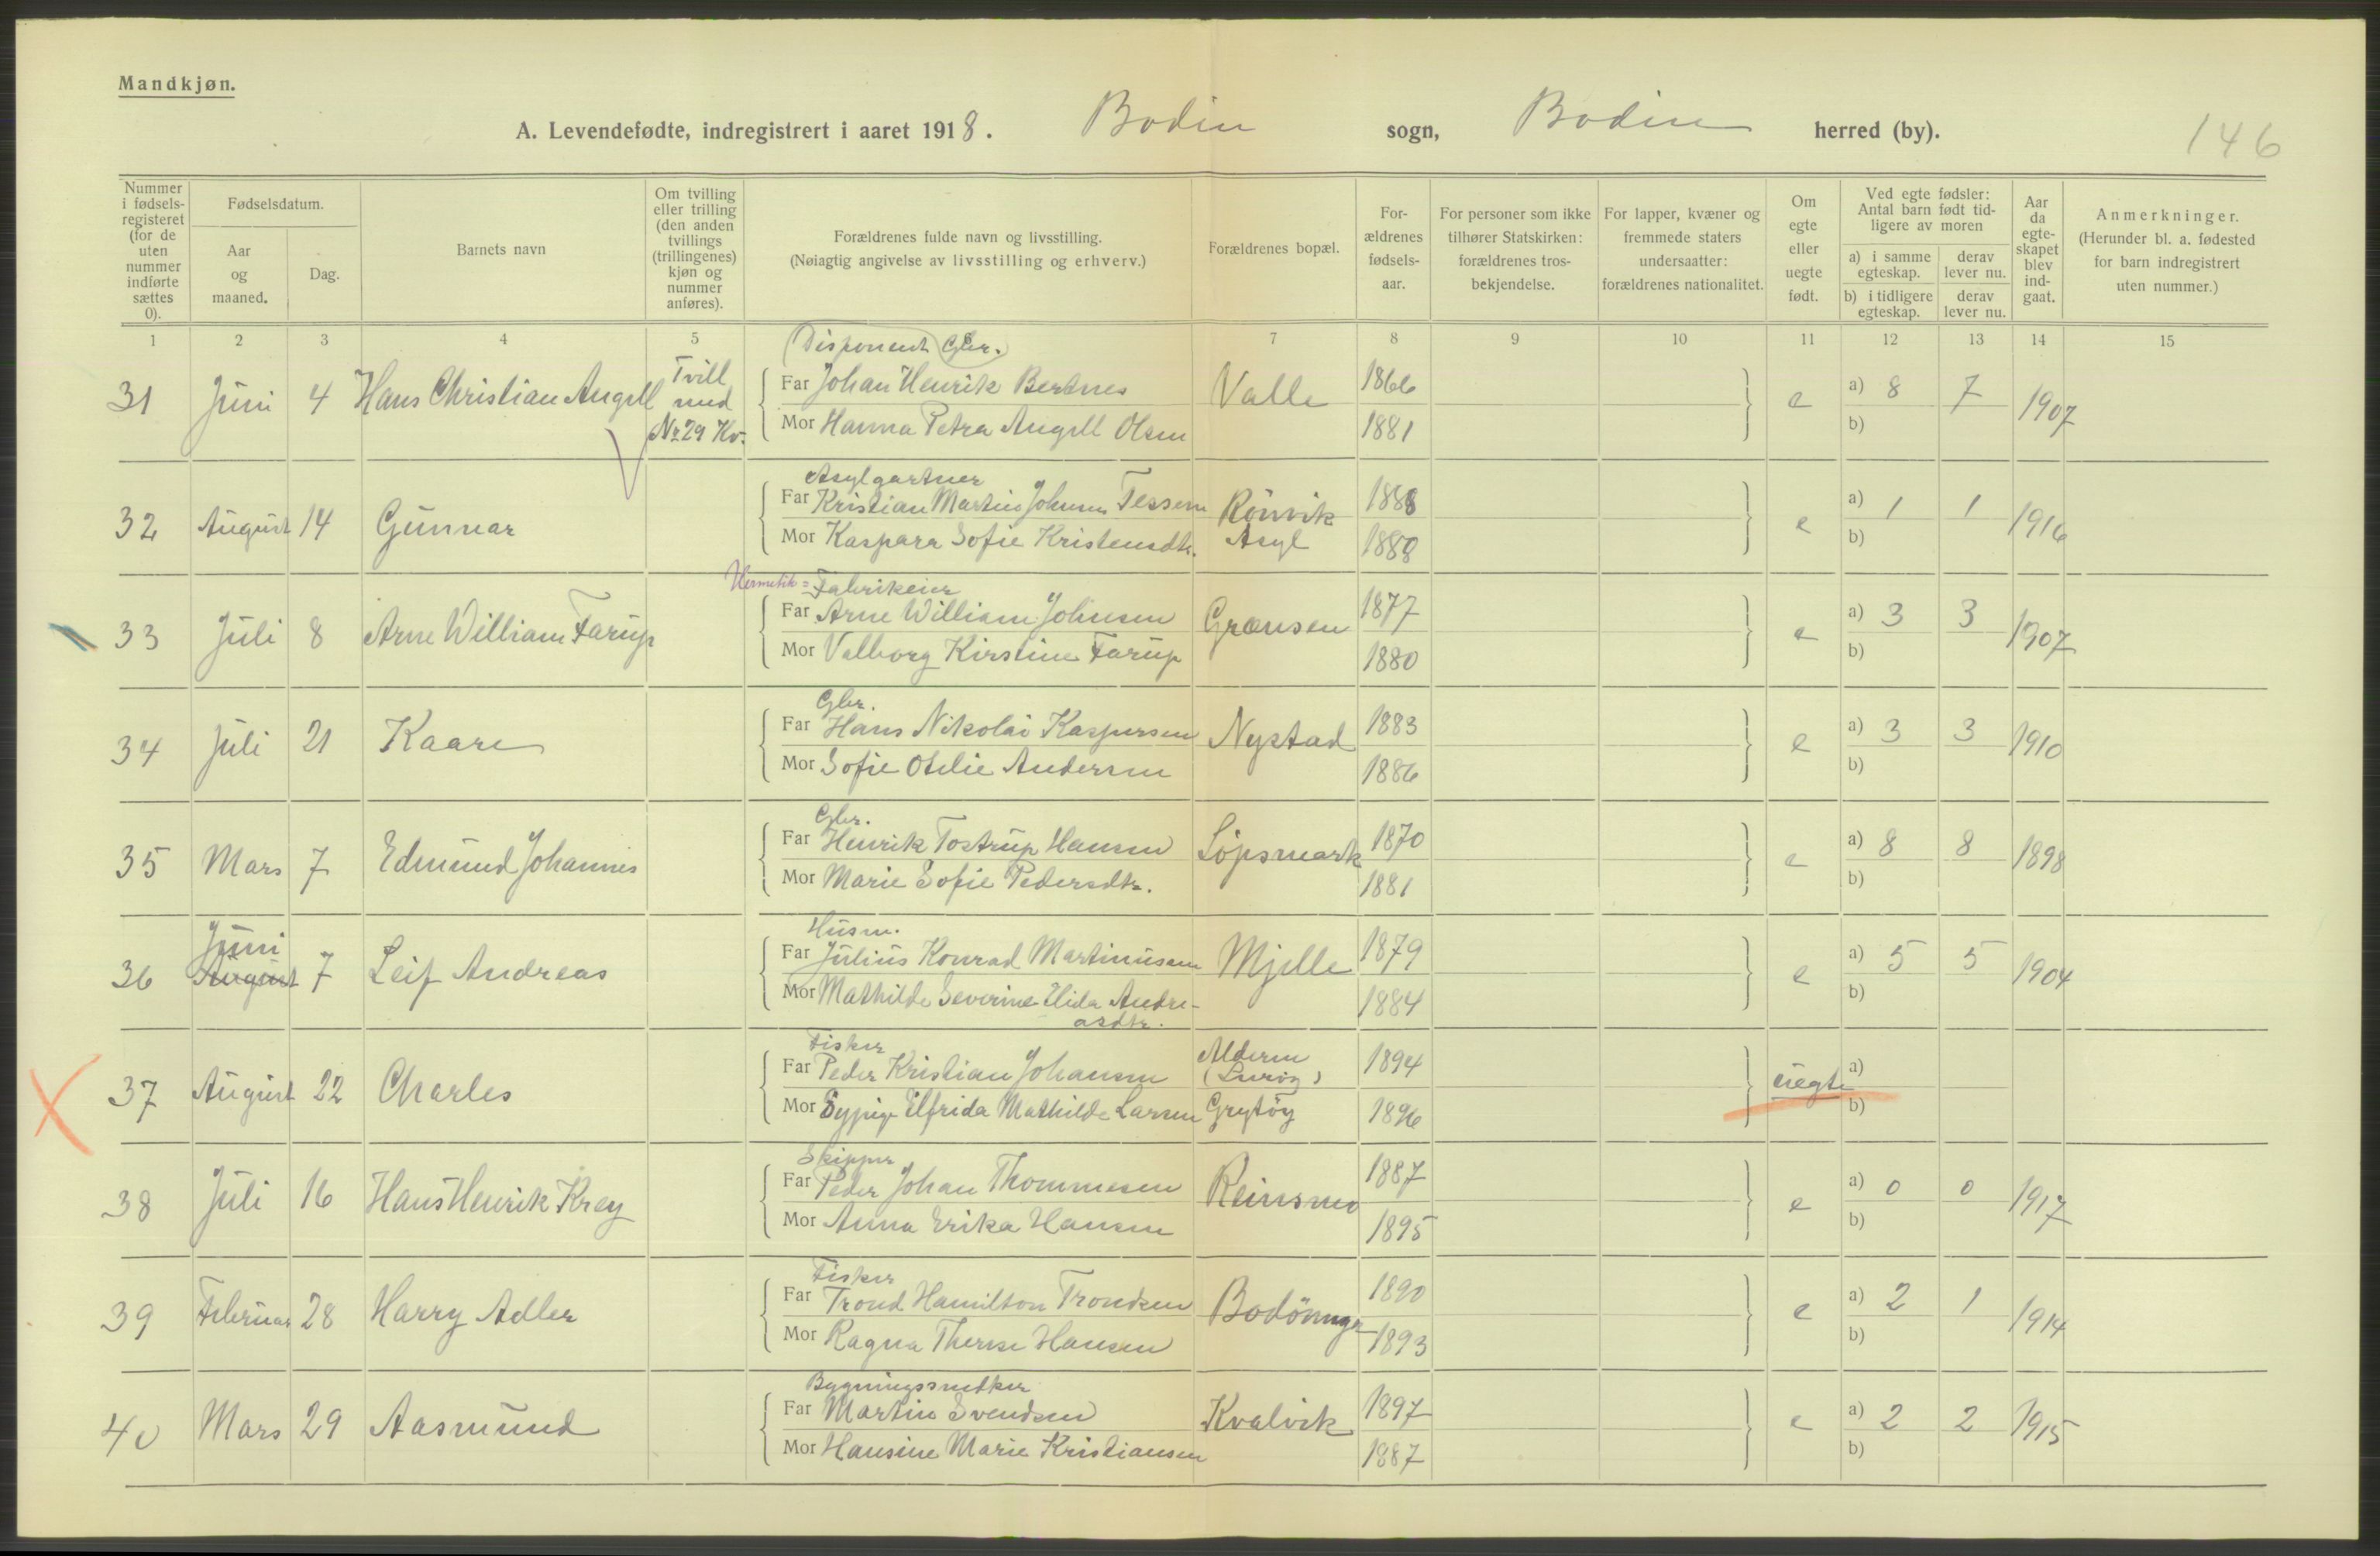 Mandkjøn.
A. Levendefødte, indregistrert i aaret 1918. Bodin sogn, Bodin herred (by). 146
Nummer i fødsels-registeret (for de uten nummer indførte sættes 0).
Fødselsdatum.
Aar og maaned.
Dag.
Barnets navn
Om tvilling eller trilling (den anden tvillings (trillingenes) kjøn og nummer anføres).
Forældrenes fulde navn og livsstilling.
(Nøiagtig angivelse av livsstilling og erhverv.)
Forældrenes bopæl.
For-ældrenes fødsels-aar.
For personer som ikke tilhører Statskirken: forældrenes tros-bekjendelse.
For lapper, kvæner og fremmede staters undersaatter: forældrenes nationalitet.
Om egte eller uegte født.
Ved egte fødsler: Antal barn født tid-ligere av moren
a) i samme egteskap.
derav lever nu.
b) i tidligere egteskap.
derav lever nu.
Aar da egte-skapet blev ind-gaat.
Anmerkninger.
(Herunder bl. a. fødested for barn indregistrert uten nummer.)
1 2 3 4 5 6 7 8 9 10 11 12 13 14 15
Disponent Gbr.
31 Juni 4 Hans Christian Angell Tvill med No 29 Kv. Far Johan Henrik Bertnes Valle 1866 e a) 8 7 1907
Mor Hanna Petra Angell Olsen 1881 b)
Asylgartner
32 August 14 Gunnar Far Kristian Martin Johnsen Tessem Rönvik Asyl 1888 e a) 1 1 1916
Mor Kaspara Sofie Kristensdtr. 1888 b)
Hermetik= Fabrikeier
33 Juli 8 Arne William Farup Far Arne William Johnsen Grænsen 1877 e a) 3 3 1907
Mor Valborg Kirstine Farup 1880 b)
Gbr.
34 Juli 21 Kaare Far Hans Nikolai Kaspersen Nystad 1883 e a) 3 3 1910
Mor Sofie Otilie Andersen 1886 b)
Gbr.
35 Mars 7 Edmund Johannes Far Henrik Tostrup Hansen Löpsmark 1870 e a) 8 8 1898
Mor Marie Sofie Pedersdtr. 1881 b)
Husm.
36 Juni August 7 Leif Andreas Far Julius Konrad Martinusen Mjelle 1879 e a) 5 5 1904
Mor Mathilde Severine Elida Andre-asdtr. 1884 b)
Fisker
37 August 22 Charles Far Peder Kristian Johansen Alderen (Luröy) 1894 uegte a)
Mor Elfrida Mathilde Larsen Grytöy 1896 b)
Skipper
38 Juli 16 Hans Henrik Krey Far Peder Johan Thommesen Reinsmo 1887 e a) 0 0 1917
Mor Anna Erika Hansen 1895 b)
Fisker
39 Februar 28 Harry Adler Far Trond Hamilton Trondsen 1890 e a) 2 1 1914
Mor Ragna Therese Hansen 1893 b)
Bygningssnedker
40 Mars 29 Aasmund Far Martin Svendsen Kvalvik 1897 e a) 2 2 1915
Mor Hansine Marie Kristiansen 1887 b)